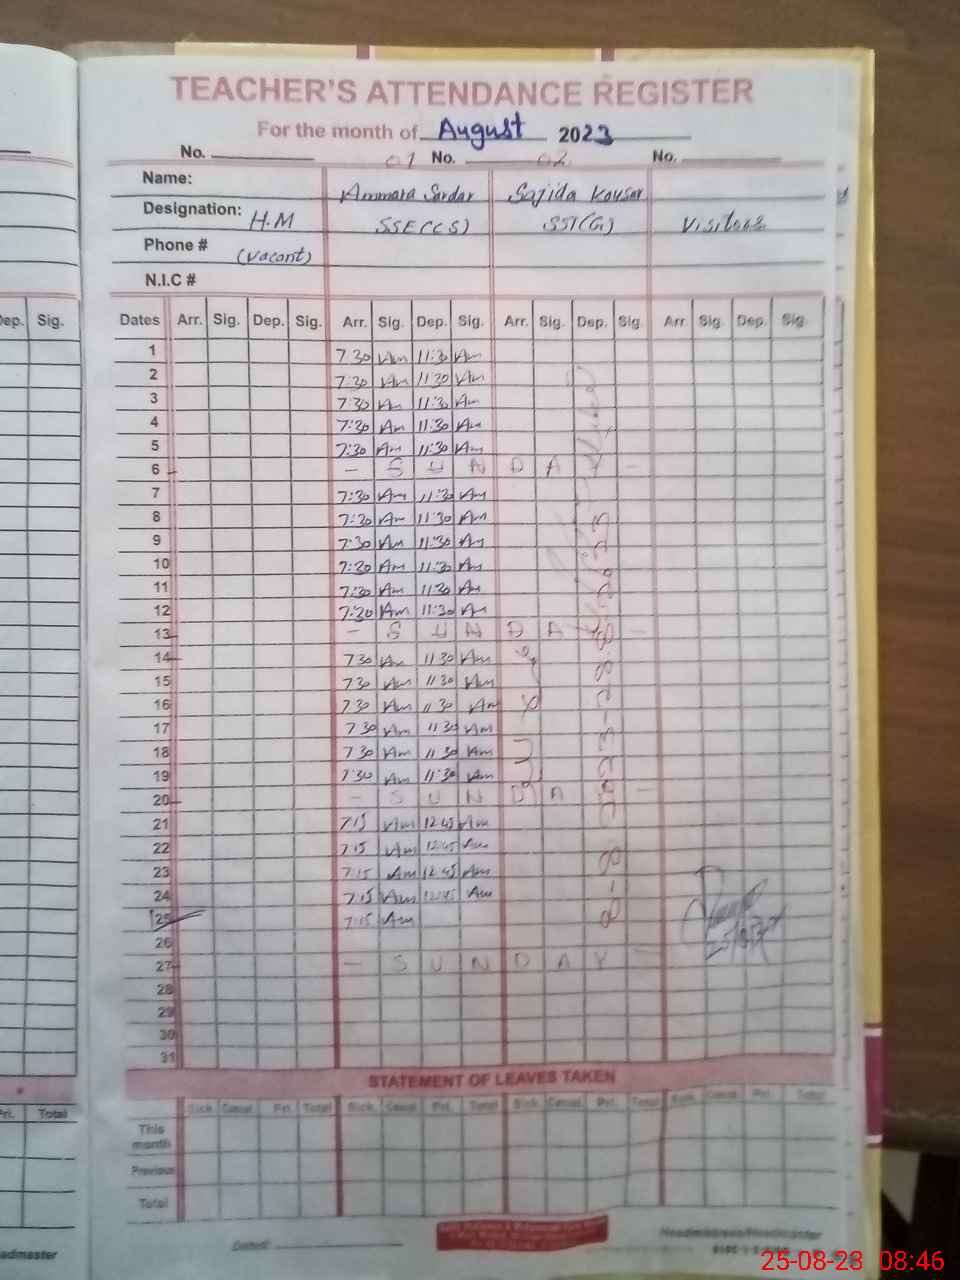 TEACHER'S ATTENDANCE REGISTER
For the month of August 2023
No. 01 No. 02 No.
Name: Ammara Sardar Sajida Kousar
Designation: H.M SSE(CS) SST(G) Visitors
Phone # (Vacant)
N.I.C #
Dep. Sig. Dates Arr. Sig. Dep. Sig. Arr. Sig. Dep. Sig. Arr. Sig. Dep. Sig. Arr. Sig. Dep. Sig.
1 7:30 Am 11:30 Am
2 7:30 Am 11:30 Am
3 7:30 Am 11:30 Am
4 7:30 Am 11:30 Am
5 7:30 Am 11:30 Am
6 - S U N D A Y -
7 7:30 Am 11:30 Am
8 7:30 Am 11:30 Am
9 7:30 Am 11:30 Am
10 7:30 Am 11:30 Am
11 7:30 Am 11:30 Am
12 7:30 Am 11:30 Am
13 - S U N D A Y -
14 7:30 Am 11:30 Am
15 7:30 Am 11:30 Am
16 7:30 Am 11:30 Am
17 7:30 Am 11:30 Am
18 7:30 Am 11:30 Am
19 7:30 Am 11:30 Am
20 - S U N D A Y -
21 7:15 Am 12:45 Am
22 7:15 Am 12:45 Am
23 7:15 Am 12:45 Am
24 7:15 Am 12:45 Am
25 7:15 Am
26
27 - S U N D A Y -
28
29
30
31
STATEMENT OF LEAVES TAKEN
Pri. Total Sick Casual Pri. Total Sick Casual Pri. Total Sick Casual Pri. Total Sick Casual Pri. Total
This month
Previous
Total
Dated:
Headmistress/Headmaster
25-08-23 08:46